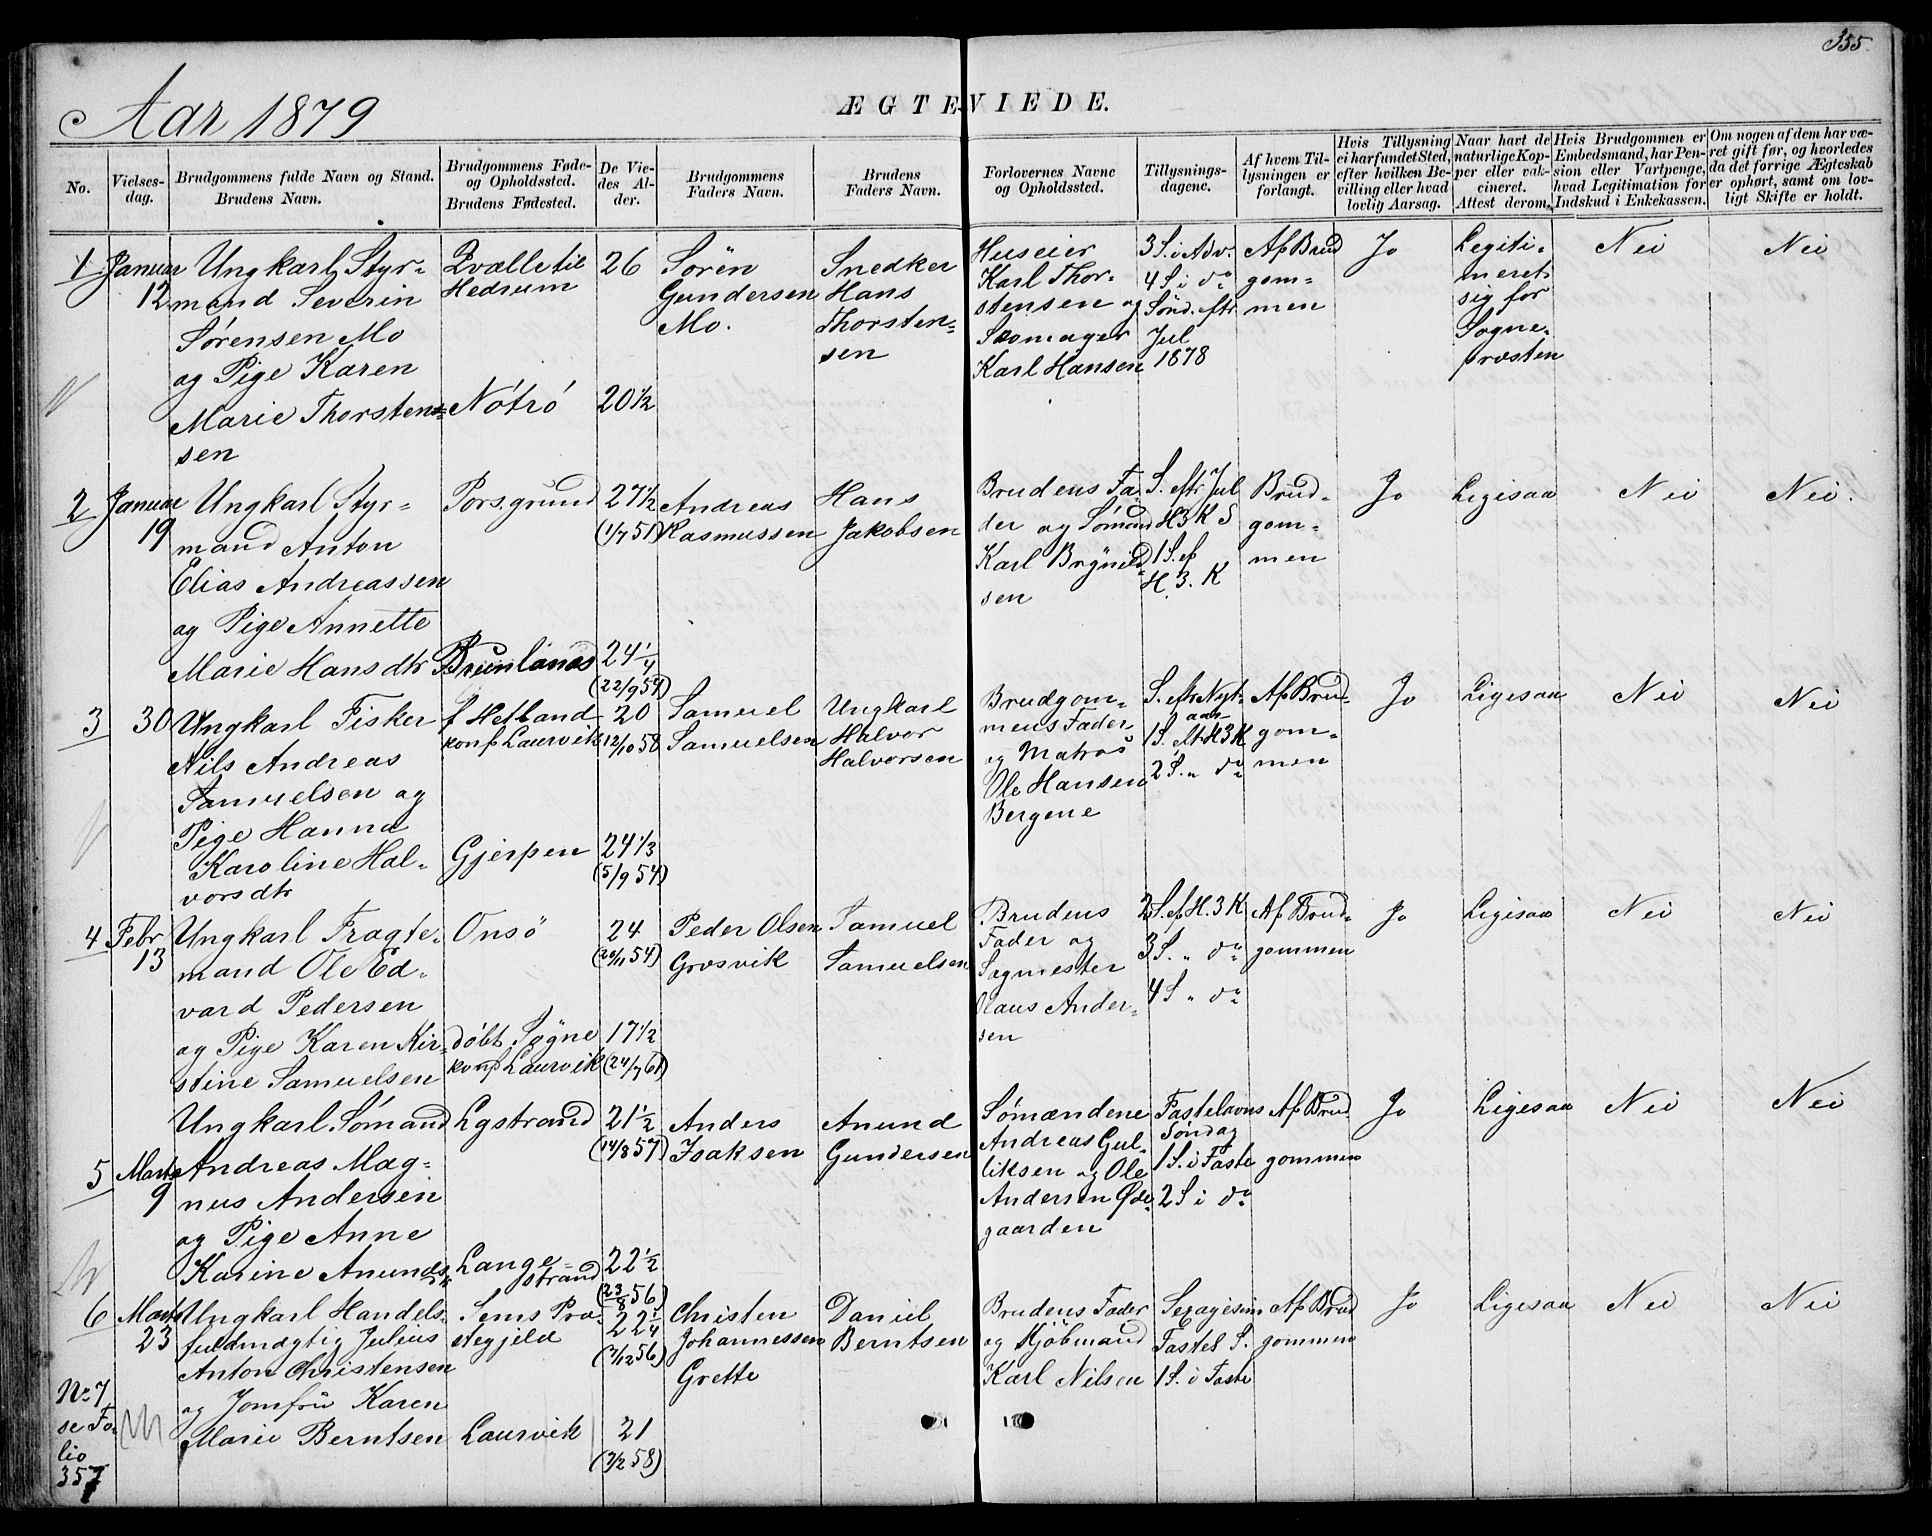 355.
Aar 1879
ÆGTEVIEDE.
No.
Vielses-
dag.
Brudgommens fulde Navn og Stand.
Brudens Navn.
Brudgommens Føde-
og Opholdssted.
Brudens Fødested.
De Vie-
des Al-
der.
Brudgommens
Faders Navn.
Brudens
Faders Navn.
Forlovernes Navne
og Opholdssted.
Tillysnings-
dagene.
Af hvem Til-
lysningen er
forlangt.
Hvis Tillysning
ei har fundet Sted,
efter hvilken Be-
villing eller hvad
lovlig Aarsag.
Naar havt de
naturlige Kop-
per eller vak-
cineret.
Attest derom.
Hvis Brudgommen er
Embedsmand, har Pen-
sion eller Vartpenge,
hvad Legitimation for
Indskud i Enkekassen.
Om nogen af dem har væ-
ret gift før, og hvorledes
da det forrige Ægteskab
er ophørt, samt om lov-
ligt Skifte er holdt.
1
Januar
12
Ungkarl Styr-
mand Severin
Sørensen Mo
og Pige Karen
Marie Thorsten-
sen
Qvælle til
Hedrum
Nótró
26
20 1/2
Sören
Gundersen
Mo.
Snedker
Hans
Thorsten-
sen
Huseier
Karl Thor-
stensen og
Karl Hansen
3 S. i Adv.
4 S i do
Sönd. eftr
Jul
1878
Af Brud
gom-
men
Jo
Legiti-
meret
sig for
Sogne-
præsten
Nei
Nei
2
Januar
19
Ungkarl Styr-
mand Anton
Elias Andreassen
og Pige Annette
Marie Hansdtr
Porsgrund
Brunlanes
27 1/2
(1/7 51)
24 1/4
(22/9 54)
Andreas
Rasmussen
Hans
Jakobsen
Brudens Fa-
der og Sömand
Karl Brynild-
sen
S. eftr Jul
H 3 K S
1 S. ef
H. 3. K
Brud-
gom-
men
Jo
Ligesaa
Nei
Nei.
3
30
Ungkarl Fisker
Nils Andreas
Samuelsen og
Pige Hanna
Karoline Hal-
vorsdtr
f Hetland
konf Laurvik
Gjerpen
20
12/10 58
24 1/3
(5/9 54)
Samuel
Samuelsen
Ungkarl
Halvor
Halvorsen
Brudgom-
mens Fader
og Matros
Ole Hansen
Bergene
S. eftr Nyt-
aar
1 S. eftr H 3 K
2 S. " do
Af Brud-
gom-
men
Jo
Ligesaa
Nei
Nei
4
Febr
13
Ungkarl Fragte-
mand Ole Ed-
vard Pedersen
og Pige Karen Kir-
stine Samuelsen
Onsö
döbt Sögne
konf Laurvik
24
(20/11 54)
17 1/2
(24/7 61)
Peder Olsen
Grosvik
Samuel
Samuelsen
Brudens
Fader og
Sagmester
Olaus Ander-
sen
2 S. ef H. 3 K
3 S. " do
4 S " do
Af Brud-
gommen
Jo
Ligesaa
Nei
Nei
5
Marts
9
Ungkarl Sömand
Andreas Mag-
nus Andersen
og Pige Anne
Karine Anunds-
dtr
Lgstrand
Lange-
strand
21 1/2
(14/8 57)
22 1/2
(23/8 56)
Anders
Isaksen
Anund
Gundersen
Sömændene
Andreas Gul-
liksen og Ole
Andersen Øde-
gaarden
Fastelavns
Söndag
1 S. i Faste
2 S i do
Af Brud
gommen
Jo
Ligesaa
Nei
Nei
6
Marts
23
Ungkarl Handels-
fuldmægtig Julius
Anton Christensen
og Jomfru Karen
Marie Berntsen
Sems Præ-
stegjeld
Laurvik
22 1/4
(7/12 56)
21
(7/2 58)
Christen
Johannessen
Grette
Daniel
Berntsen
Brudens Fader
og Kjöbmand
Karl Nilsen
Sexagesim
Fastel S.
1 S. i Faste
Af Brud
gommen
Jo
Ligesaa
Nei
Nei
No 7
se Fo-
lio
357